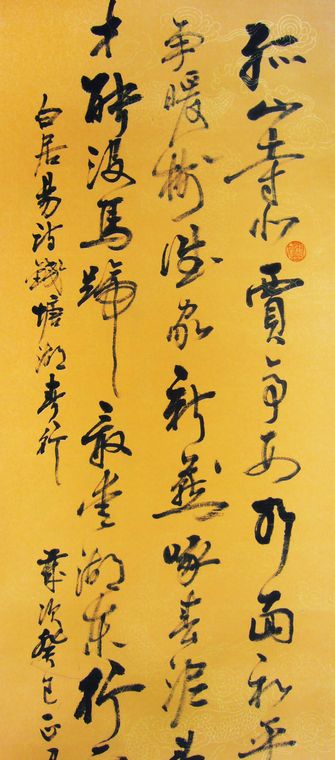 孤山寺北賈亭西水面初平
爭暖樹誰家新燕啄春泥
才能沒馬蹄最愛湖東行
白居易詩錢塘湖春行 歲次癸巳正